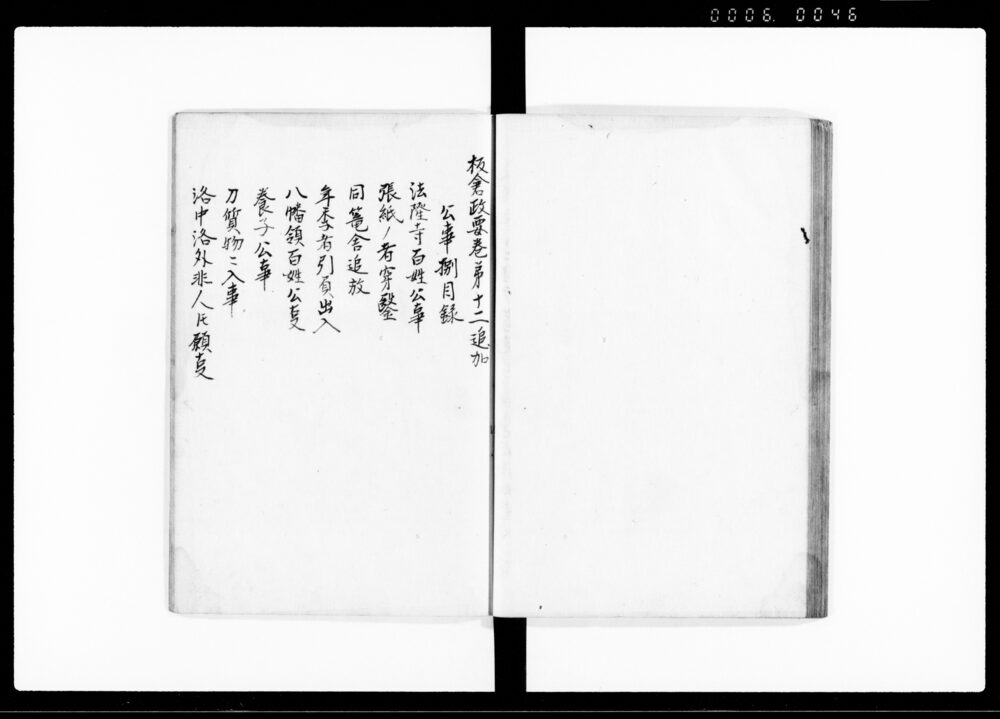 0006. 0046
板倉政要巻第十二 追加
公事捌目録
法隆寺百姓公事
張紙ノ者穿鑿
同篭舎追放
年季者引負出入
八幡領百姓公事
養子公事
刀質物ニ入事
洛中洛外非人氏願事